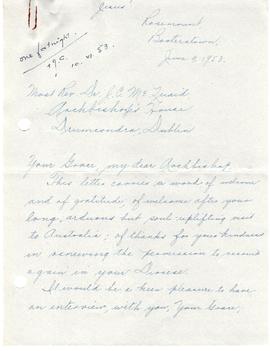 Jesus!
Rosemount
Booterstown,
June 9, 1953.
one fortnight.
+ J.C.
10. VI. 53.
Most Rev. Dr. J.C. McQuaid
Archbishop's House
Drumcondra, Dublin
Your Grace, my dear Archbishop,
This letter carries a word of welcome
and of gratitude, of welcome after your
long, arduous but soul-uplifting visit
to Australia; of thanks for your kindness
in renewing the permission to
again in your Diocese.
It would be a keen pleasure to have
an interview, with you, Your Grace,